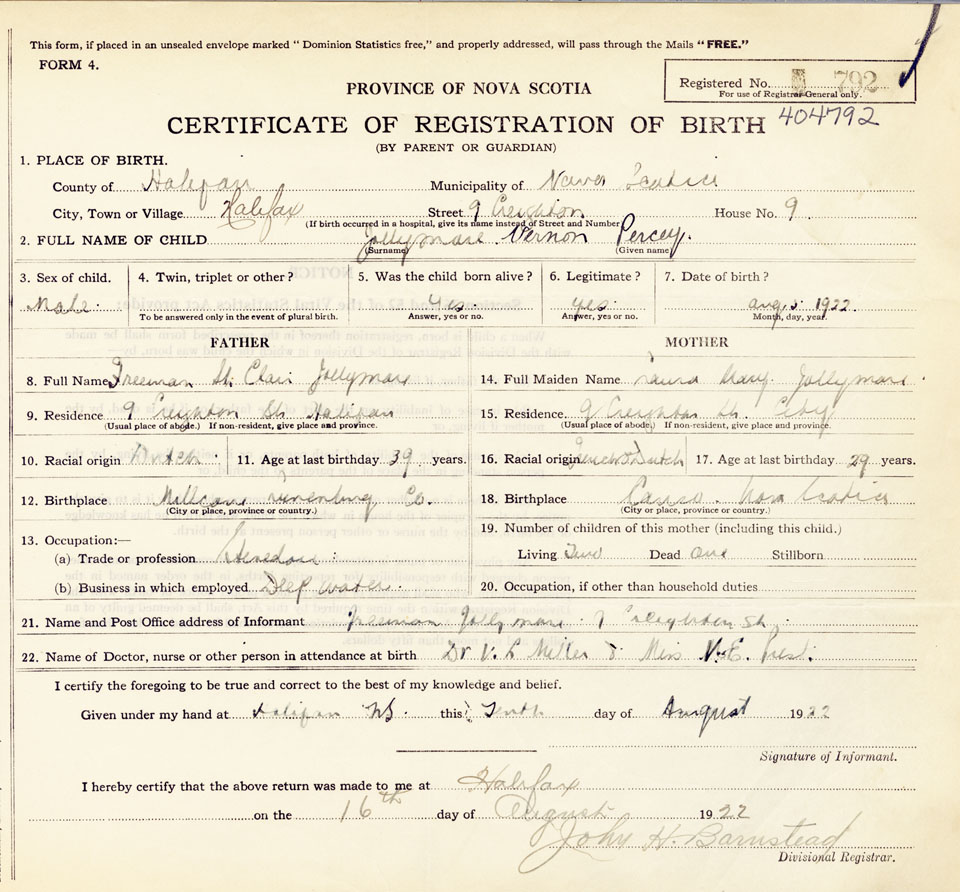 This form, if placed in an unsealed envelope marked "Dominion Statistics free," and properly addressed, will pass through the Mails "FREE."
FORM 4.
PROVINCE OF NOVA SCOTIA
Registered No. 792
For use of Registrar-General only.
404792
CERTIFICATE OF REGISTRATION OF BIRTH
(BY PARENT OR GUARDIAN)
1. PLACE OF BIRTH.
County of Halifax Municipality of Nova Scotia
City, Town or Village Halifax Street 9 Creighton House No. 9
(If birth occurred in a hospital, give its name instead of Street and Number
2. FULL NAME OF CHILD Jollymore Vernon Percey.
(Surname) (Given name)
3. Sex of child. 4. Twin, triplet or other? 5. Was the child born alive? 6. Legitimate? 7. Date of birth?
Male Yes yes Aug 1922
To be answered only in the event of plural birth. Answer, yes or no. Answer, yes or no. Month, day, year.
FATHER MOTHER
8. Full Name Freeman St. Clair Jollymore 14. Full Maiden Name Mary Jollymore
9. Residence 9 Creighton St. Halifax 15. Residence 9 Creighton St. City
(Usual place of abode.) If non-resident, give place and province. (Usual place of abode,) If non-resident, give place and province.
10. Racial origin Dutch 11. Age at last birthday 39 years. 16. Racial origin French Dutch 17. Age at last birthday 29 years.
12. Birthplace Lunenburg Co. 18. Birthplace Canso. Nova Scotia
(City or place, province or country.) (City or place, province or country.)
19. Number of children of this mother (including this child.)
13. Occupation:—
(a) Trade or profession Stevedore Living Dead one Stillborn
(b) Business in which employed Deep water 20. Occupation, if other than household duties
21. Name and Post Office address of Informant Freeman Jollymore 9 Creighton St.
22. Name of Doctor, nurse or other person in attendance at birth Dr V. L Miller & Miss V. E.
I certify the foregoing to be true and correct to the best of my knowledge and belief.
Given under my hand at Halifax NS this Tenth day of August 1922
Signature of Informant.
I hereby certify that the above return was made to me at Halifax
on the 16th day of August 1922
John H. Barnstead
Divisional Registrar.